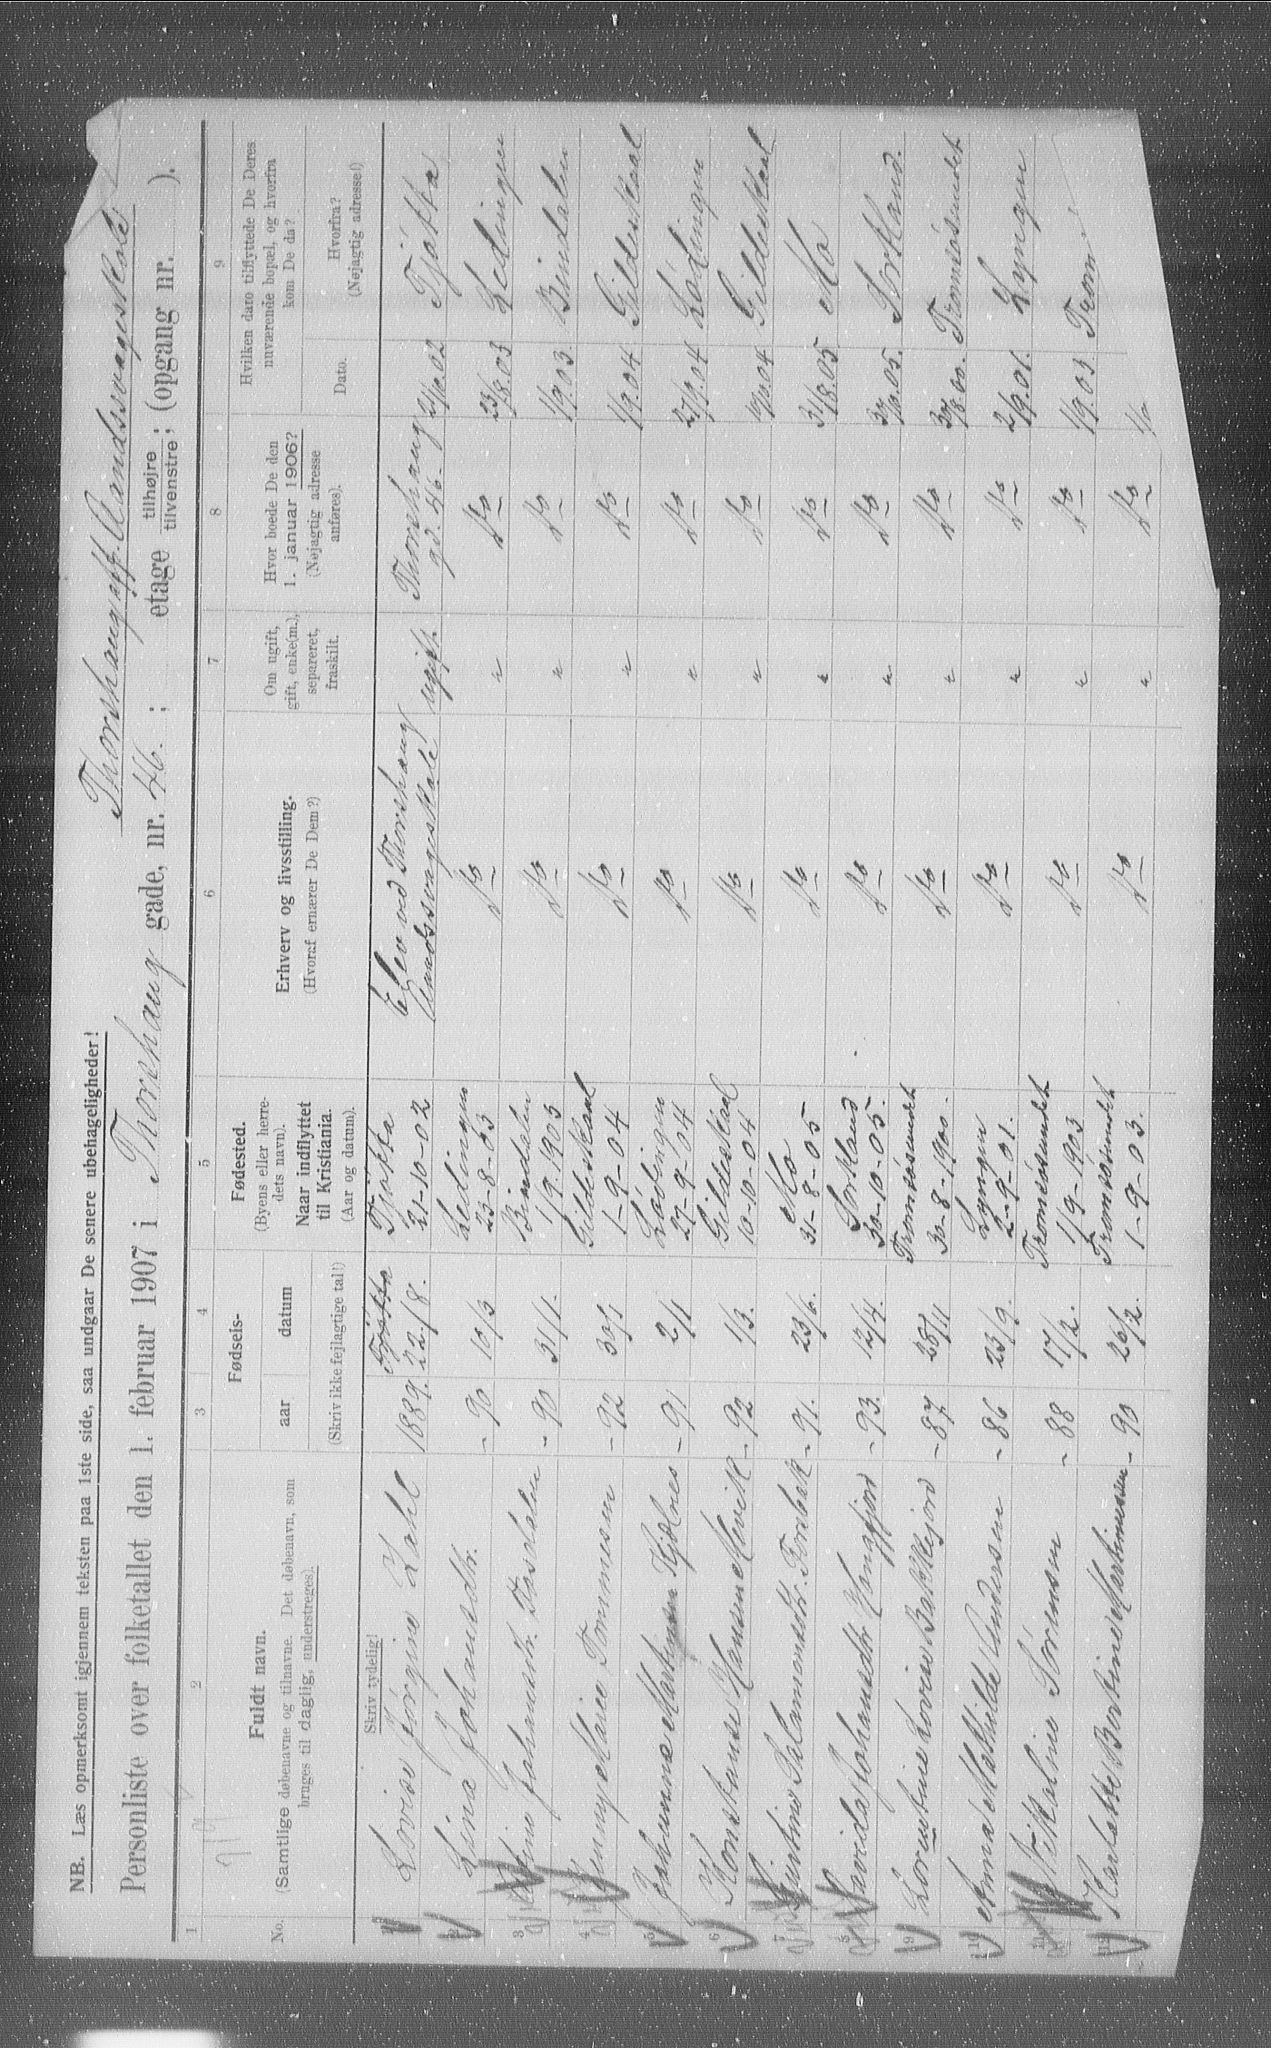 NB. Læs opmerksomt igjennem teksten paa 1ste side, saa undgaar De senere ubehageligheder!
Thorshaug aff. Aandssvageskole
Personliste over folketallet den 1. februar 1907 i Thorshaug gade, nr. 46. ; etage tilhøjre tilvenstre ; (opgang nr. ).
1 2 3 4 5 6 7 8 9
No.
Fuldt navn.
(Samtlige døbenavne og tilnavne. Det døbenavn, som
bruges til daglig, understreges).
Skriv tydelig!
Fødsels-
aar datum
(Skriv ikke fejlagtige tal!)
Fødested.
(Byens eller herre-
dets navn).
Naar indflyttet
til Kristiania.
(Aar og datum).
Erhverv og livsstilling.
(Hvoraf ernærer De Dem?)
Om ugift,
gift, enke(m.),
separeret,
fraskilt.
Hvor boede De den
1. januar 1906?
(Nøjagtig adresse
anføres).
Hvilken dato tilflyttede De Deres
nuværende bopæl, og hvorfra
kom De da?
Dato.
Hvorfra?
(Nøjagtig adresse!)
1 Lovise Jørgine Zahl 1889. 22/8. Tjøtta 21-10-02 Elev ved Thorshaug Aandssvageskole ugift. Thorshaug gd. 46. 21/10.02 Tjøtta
2 Lina Johansdtr. - 90 10/3 Lødingen 23-8-03 Do " Do 23/8.03 Lødingen
3 Johansdtr. - 90 31/1. Bindalen 1/9.1903 Do " Do 1/9.03. Bindalen
4 Jenny Marie Tommesen - 92 30/1 Gildeskaal 1-9-04 Do " Do 1/9.04 Gildeskaal
5 Johanna Kjølnes - 91 2/11 Lødingen 27-9-04 Do " Do 27/9.04 Lødingen
6 Konstanse Hansine Mevik - 92 1/3. Gildeskaal 10-10-04 Do " Do 10/10.04 Gildeskaal
7 Salamonsdtr. - 91. 23/6. Mo 31-8-05 Do " Do 31/8.05 Mo
8 Johansdtr. - 93. 12/4. Sortland 30-10-05. Do " Do 30/10.05. Sortland.
9 Lorentine Lovise Bakkejord - 87 25/11 Tromsøsundet 30-8-1900. Do " Do 30/8.00. Tromsøsundet
10 Anna Mathilde Andersen - 86 23/9. Lyngen 2-9-01. Do " Do 2/9.01. Lyngen
11 Nikoline Sørensen - 88 17/2. Tromsøsundet 1/9-1903 Do " Do 1/9.03. Troms
12 Bortine Martinussen - 90 26/2. Tromsøsundet 1-9-03. Do " Do 1/